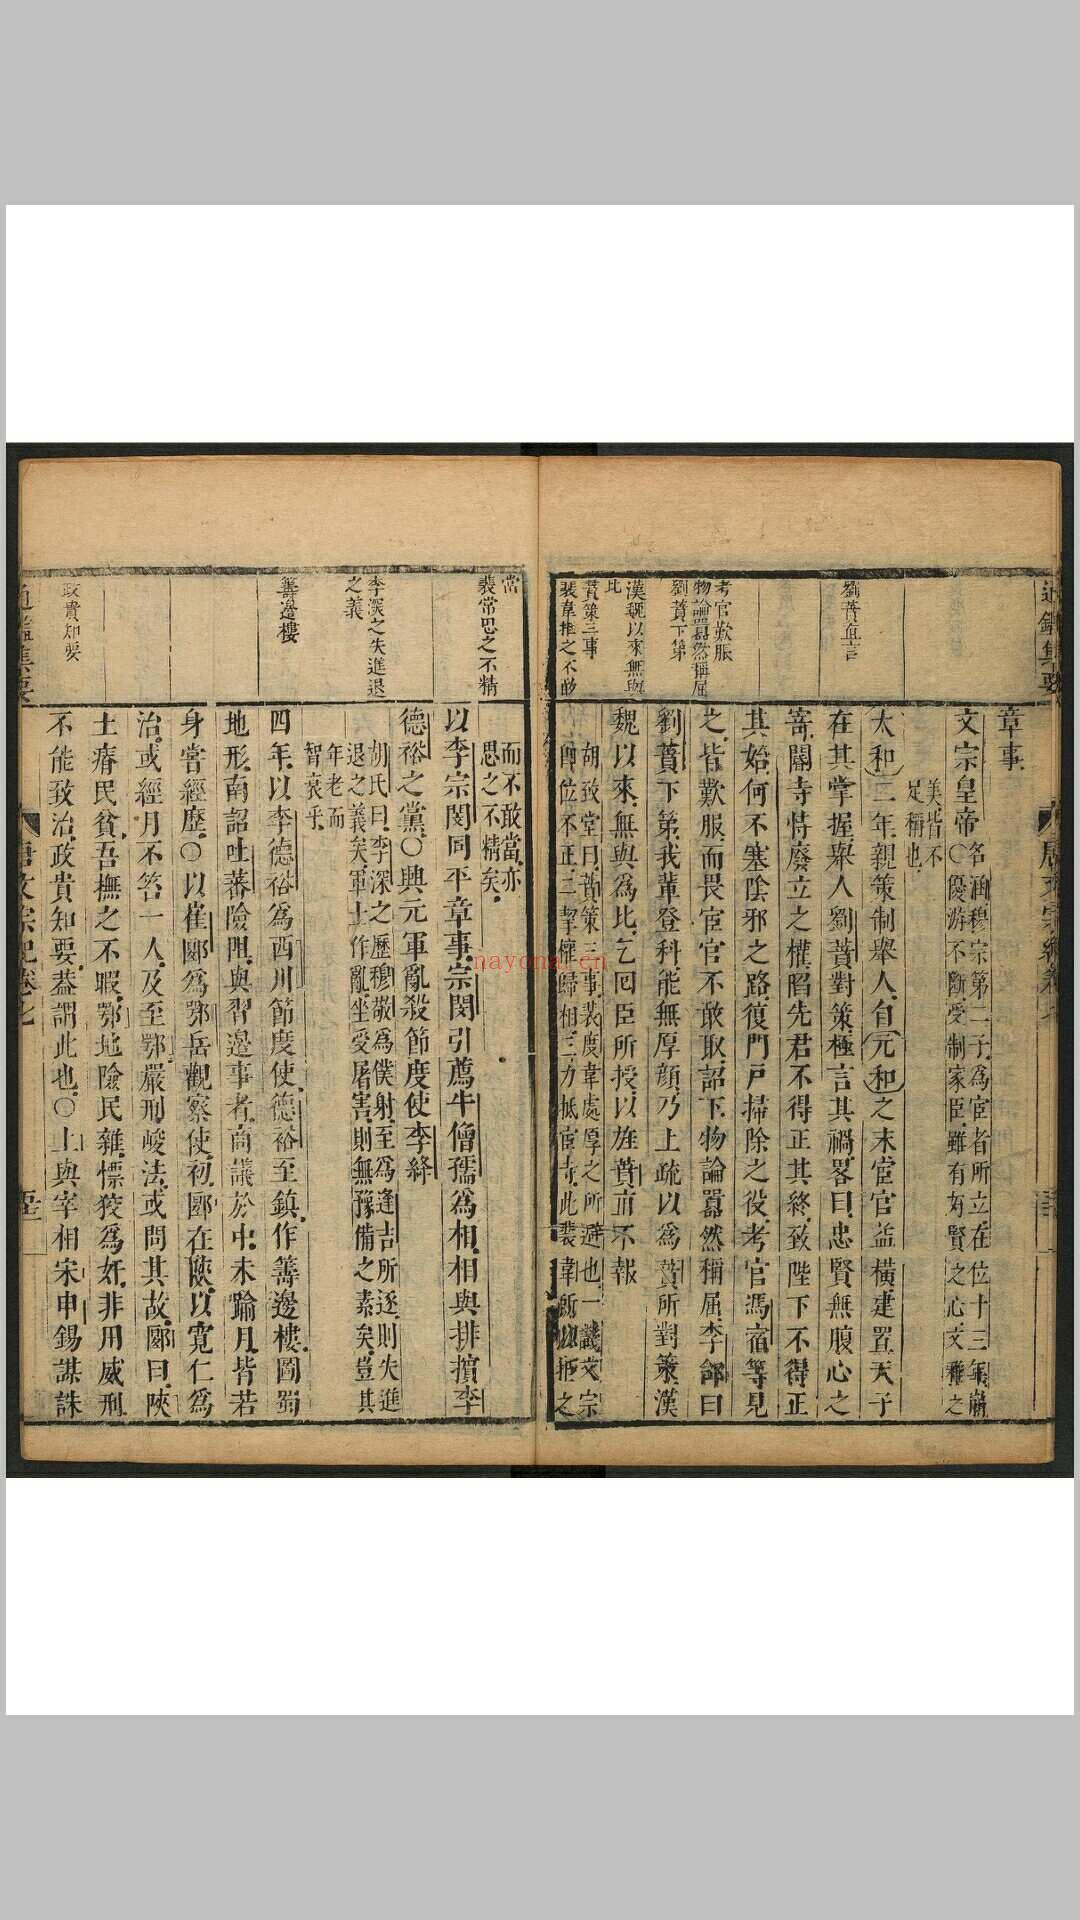 通鑑集要
劉蕡直言
考官歎服
物論囂然稱屈
劉蕡下第
漢魏以來無與
比
蕡策三事
章事
文宗皇帝名涵穆宗第二子為宦者所立在位十三年崩
○優游不斷受制家臣雖有好賢之心文雅之
美皆不
足稱也
太和二年親策制舉人自元和之末宦官益橫建置天子
在其掌握舉人劉蕡對策極言其禍畧曰忠賢無腹心之
寄閽寺恃廢立之權陷先君不得正其終致陛下不得正
其始何不塞陰邪之路復門戸掃除之役考官馮宿等見
之皆歎服而畏宦官不敢取詔下物論囂然稱屈李郃曰
劉蕡下第我輩登科能無厚顏乃上疏以為蕡所對策漢
魏以來無與為比乞回臣所授以旌蕡直不報
胡致堂曰蕡策三事裴度韋處厚之所避也一譏文宗
即位不正二掣權歸相三力抵宦寺此裴韋所以拒之
當
裴常思之不精
李深之失進退
之義
籌邊樓
政貴知要
而不敢當亦
思之不精矣
以李宗閔同平章事宗閔引薦牛僧孺為相相與排擯李
德裕之黨○興元軍亂殺節度使李絳
胡氏曰李深之歷穆敬為僕射至為逢吉所逐則失進
退之義矣軍士作亂坐受屠害則無豫備之素矣豈其
年老而
智衰乎
四年以李德裕為西川節度使德裕至鎮作籌邊樓圖蜀
地形南詔吐蕃險阻與習邊事者商議於中未踰月皆若
身嘗經歷○以崔郾為鄂岳觀察使初郾在陝以寬仁為
治或經月不笞一人及至鄂嚴刑峻法或問其故郾曰陝
土瘠民貧吾撫之不暇鄂地險民雜慓狡為奸非用威刑
不能致治政貴知要葢謂此也○上與宰相宋申錫謀誅
唐文宗紀卷七
nayona.cn